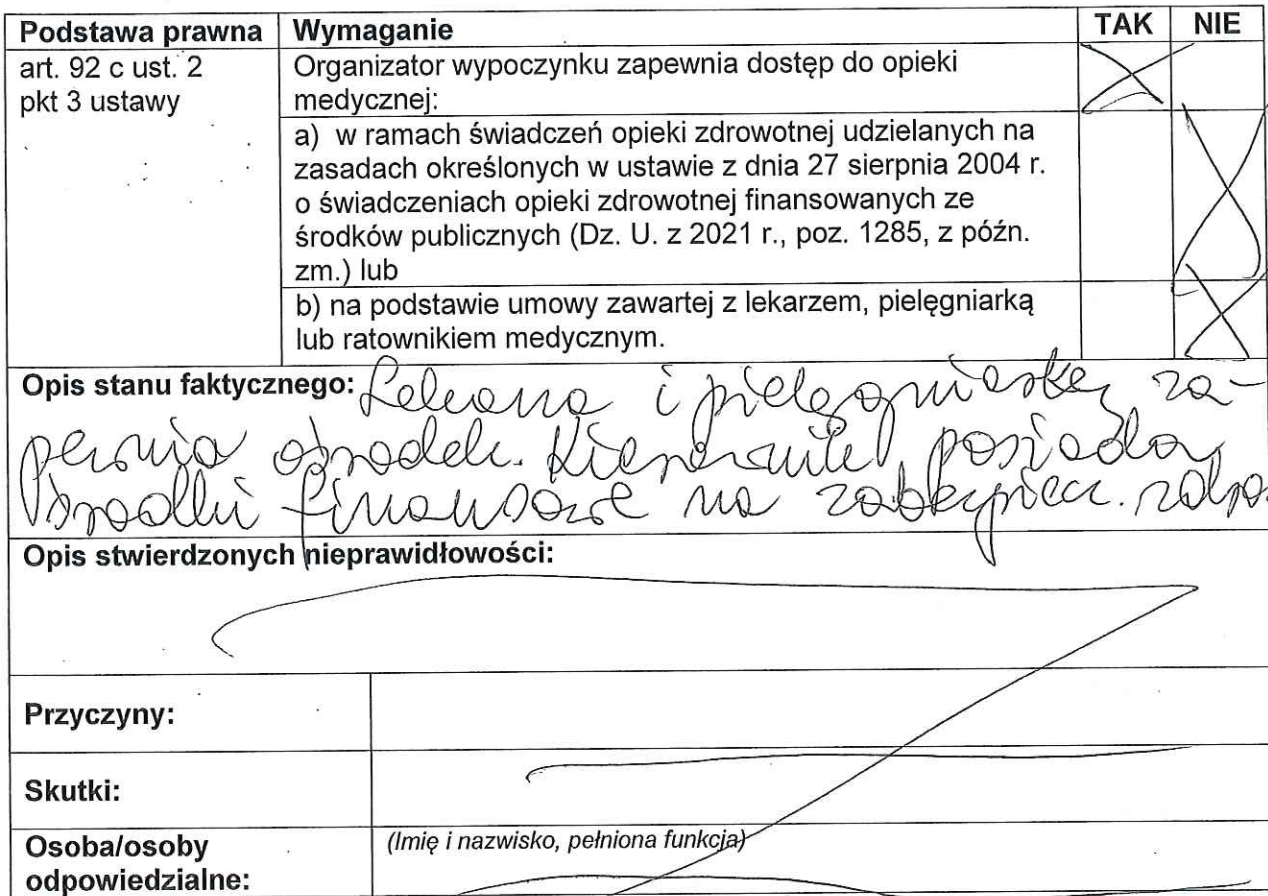 Podstawa prawna Wymaganie TAK NIE
art. 92 c ust. 2 Organizator wypoczynku zapewnia dostęp do opieki
pkt 3 ustawy medycznej:
a) w ramach świadczeń opieki zdrowotnej udzielanych na
zasadach określonych w ustawie z dnia 27 sierpnia 2004 r.
o świadczeniach opieki zdrowotnej finansowanych ze
środków publicznych (Dz. U. z 2021 r., poz. 1285, z późn.
zm.) lub
b) na podstawie umowy zawartej z lekarzem, pielęgniarką
lub ratownikiem medycznym.
Opis stanu faktycznego: Lekarza i pielęgniarkę za-
pewnia ośrodek. Kierownik posiada
środki finansowe na zabezpiecz.
Opis stwierdzonych nieprawidłowości:
Przyczyny:
Skutki:
Osoba/osoby (Imię i nazwisko, pełniona funkcja)
odpowiedzialne: